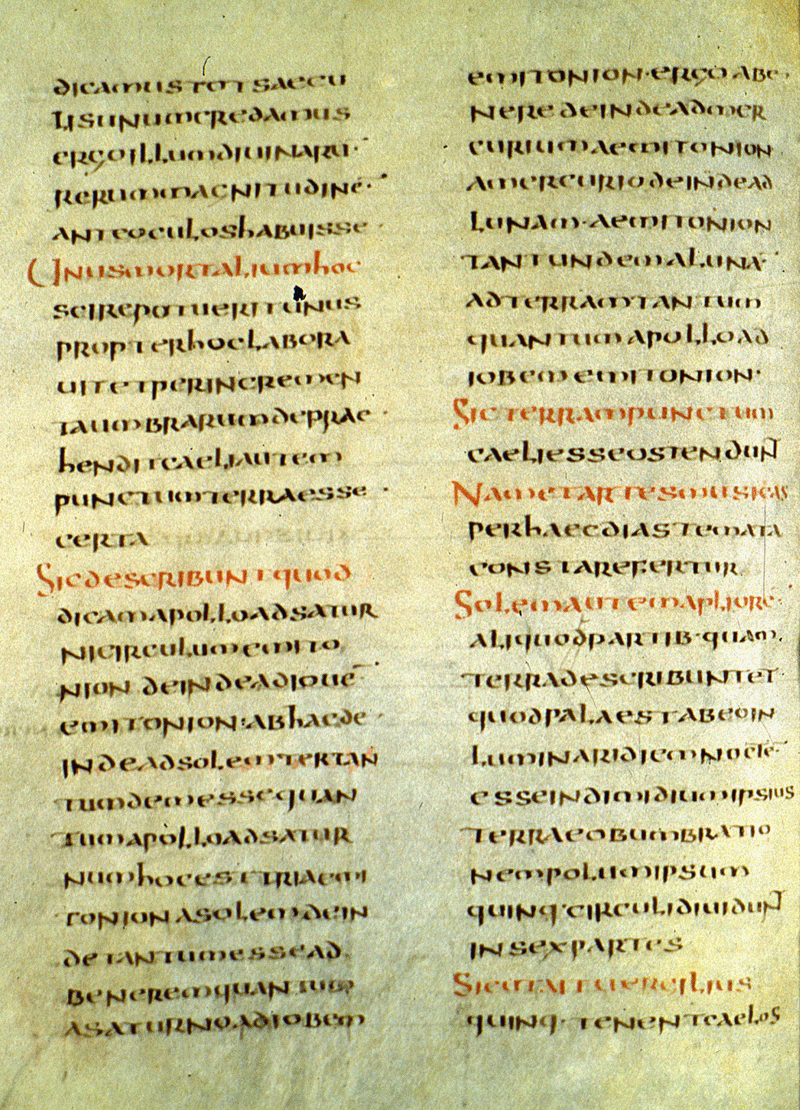 dicamus tot saecu
lis unum credamus
ergo illum diuinaru
rerum magnitudine·
ante oculos habuisse
Unus mortalium hoc
scire potuerit unus
propter hoc labora
uit et per incremen
ta umbrarum deprae
hendit caeli autem
punctum terra esse
certa
Sic describunt quod
dicam apollo ad satur
ni circulum emito
nion deinde ad ioue
emitonion· ab hac de
inde ad solem ter tan
tundem esse quan
tum apollo ad satur
num hoc est tria emi
tonion a solem dein
de tantum esse ad
benerem quantum
a saturno ad iobem
emitonion· ergo a be
nere deinde ad mer
curium aemitonion
a mercurio deinde ad
lunam· aemitonion
tantundem a luna·
ad terram tantum
quantum apollo ad
iobem emitonion·
Sic terram punctum
caeli esse ostendun
Nam et artes musicas
per haec diastemata
constare fertur
Solem autem apliore
aliquod partib· quam
terra describunt et
quod palaestabeoin
luminari diem nocte·
esse in dimidium ipsius
terrae obumbratio
nem polum ipsum
quinq· circuli diuidun
in sex partes
Sicut ait uergilius
quinq· tenent caelos